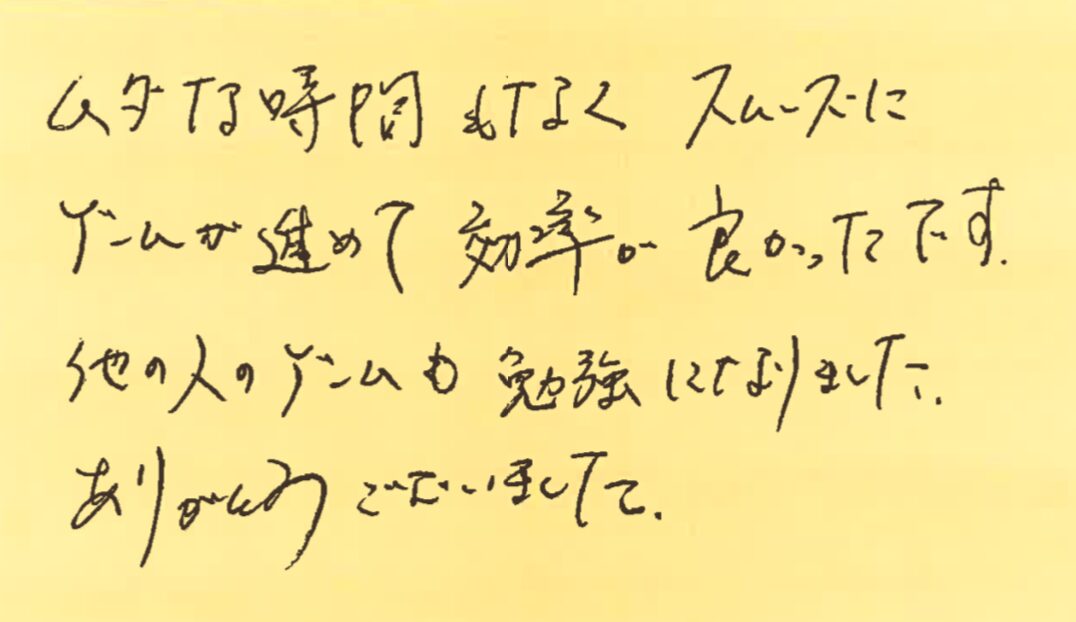 ムダな時間もなく スムーズに
ゲームが進めて 効率が 良かったです.
他の人のゲームも 勉強になりました.
ありがとう ございました.